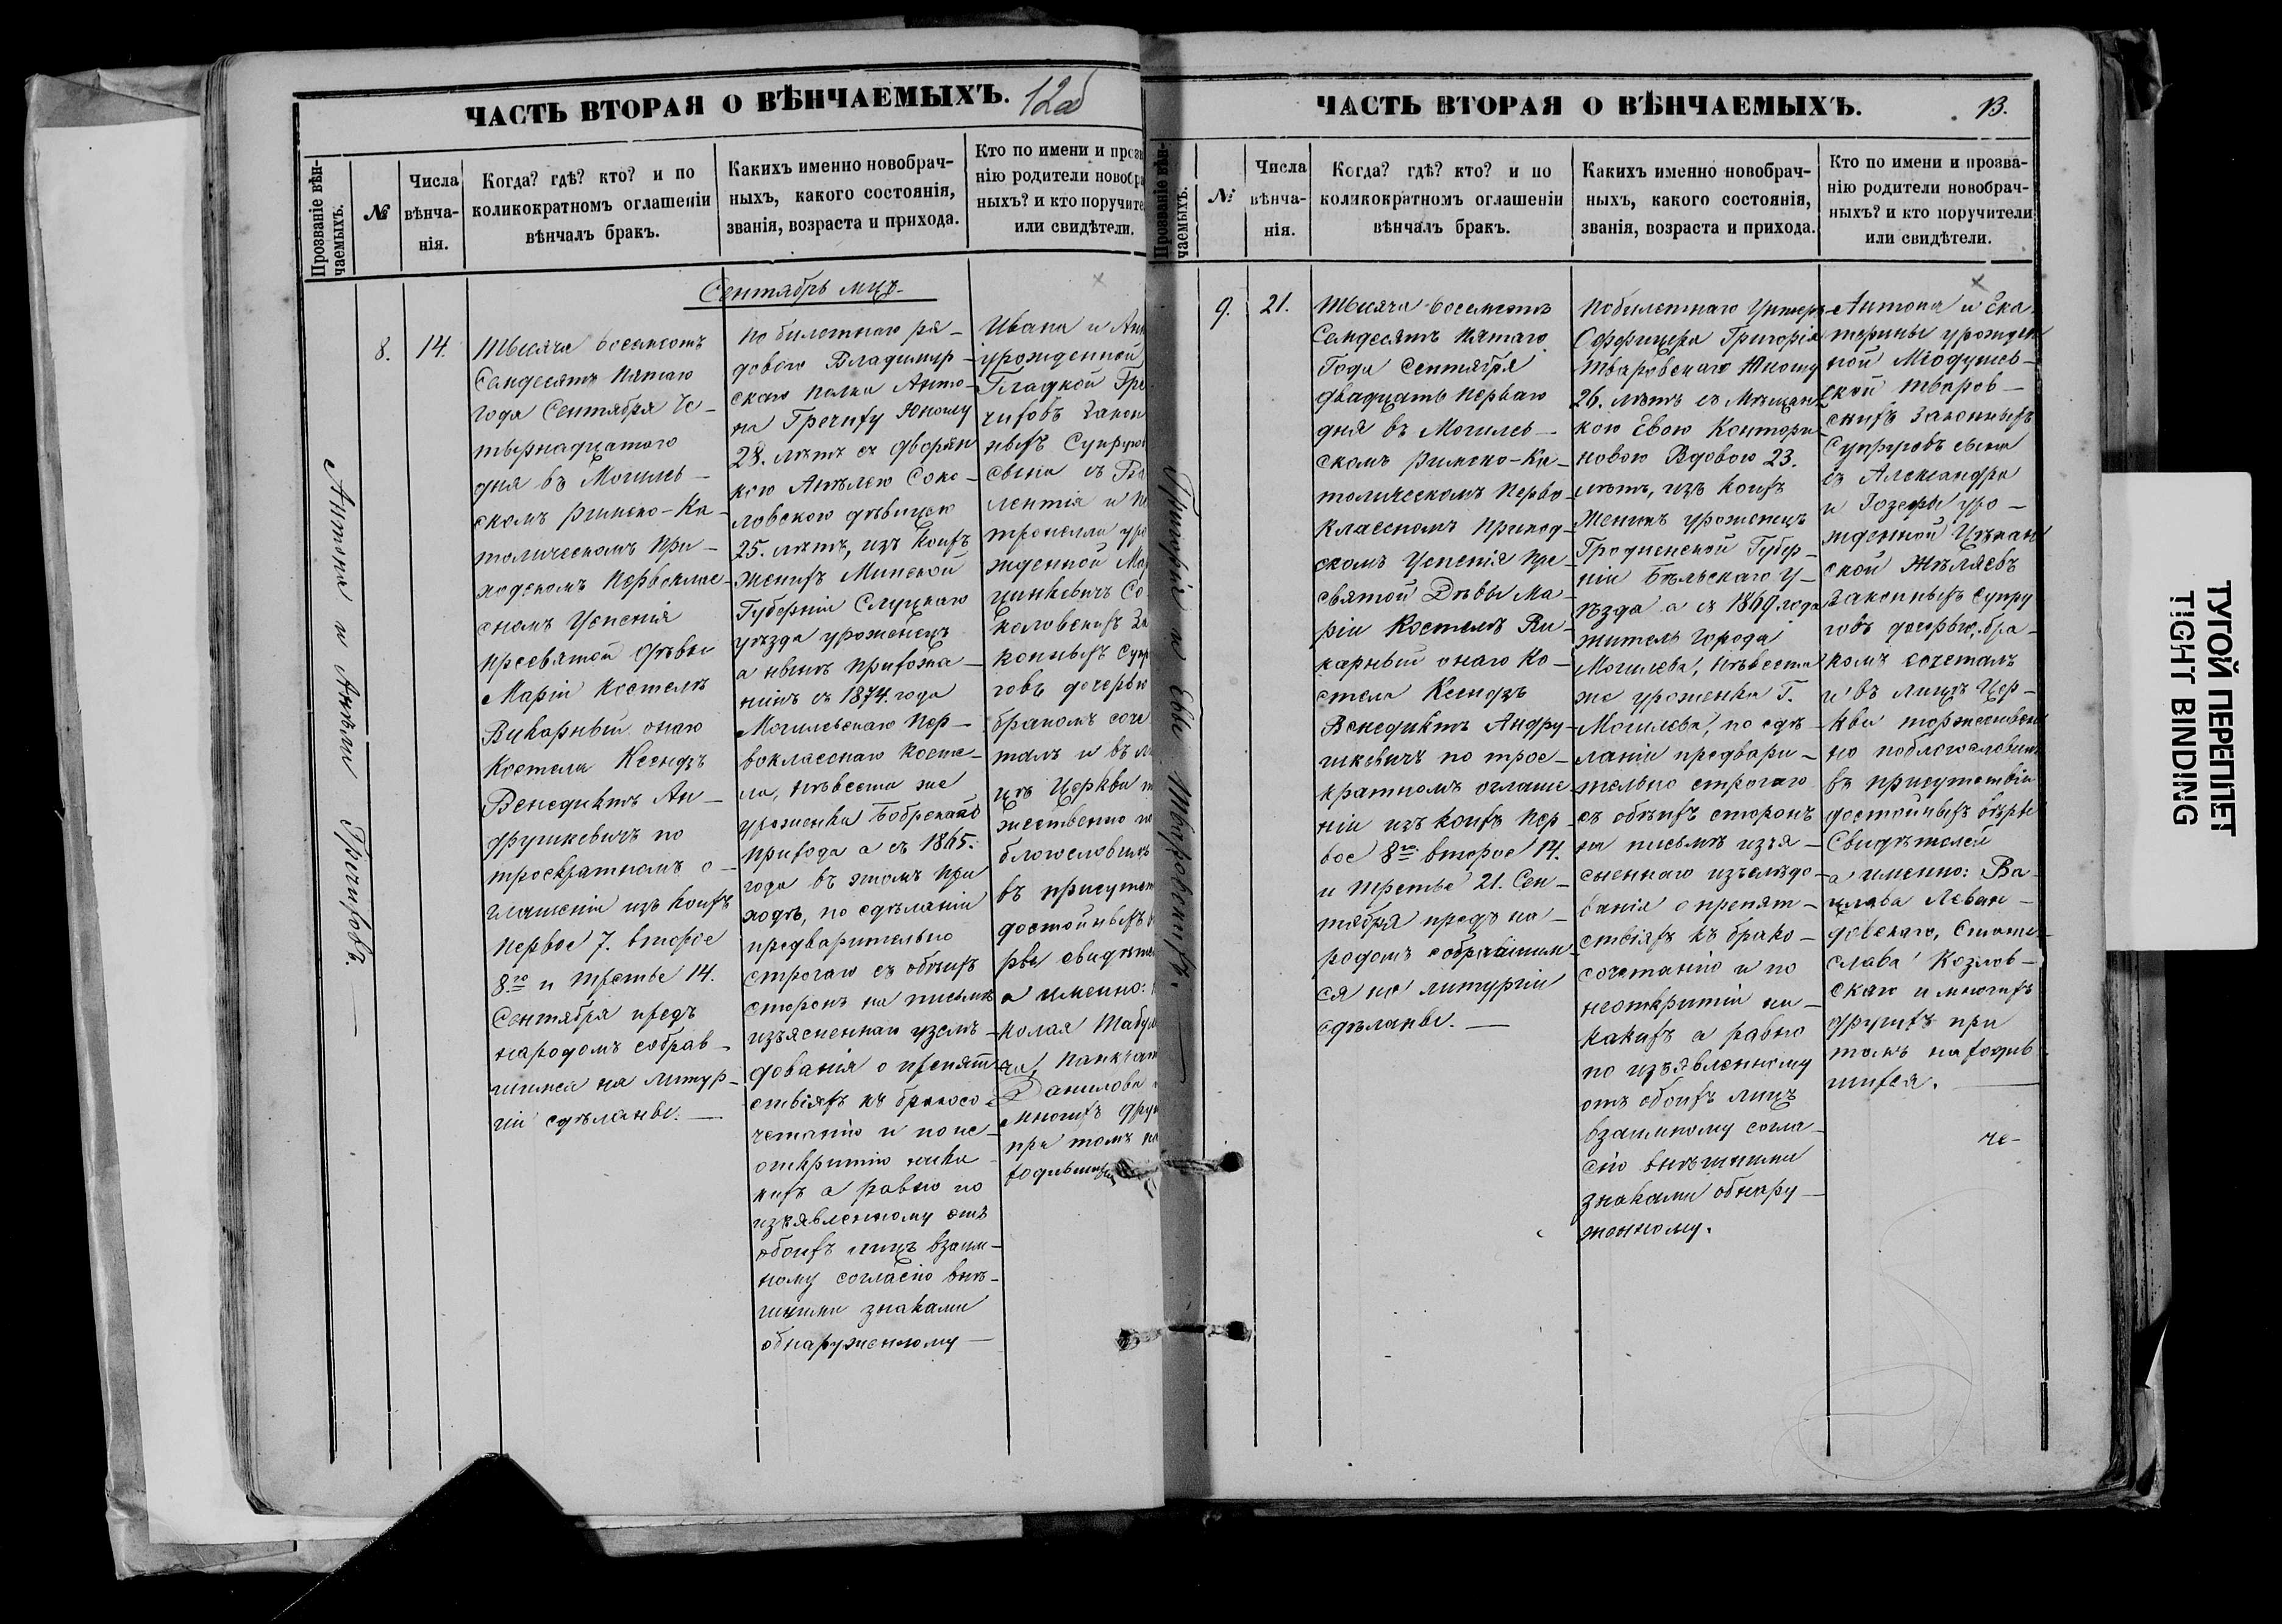 ЧАСТЬ ВТОРАЯ О ВѢНЧАЕМЫХЪ. 12об
Прозваніе вѣн-
чаемыхъ.
№
Числа
вѣнча-
нія.
Когда? гдѣ? кто? и по
коликократномъ оглашеніи
вѣнчалъ бракъ.
Какихъ именно новобрач-
ныхъ, какого состоянія,
званія, возраста и прихода.
Кто по имени и прозв
нію родители новобра
ныхъ? и кто поручите
или свидѣтели.
Сентябрь мцъ.
Антона и Анѣли Гречиховъ.
8.
14.
Тысяча восемсотъ
Семдесятъ пятаго
года Сентября Че-
тырнадцатого
дня въ Могилев-
скомъ Римско-Ка-
толическомъ при-
ходскомъ первоклас-
сномъ Успенія
пресвятой Дѣвы
Маріи Костелѣ
Викарный онаго
Костела Ксендзъ
Венедиктъ Ан-
друшкевичъ по
троекратномъ о-
глашеніи изъ коихъ
первое 7. второе
8го и третье 14.
Сентября предъ
народомъ собрав-
шимся на литур-
гіи сдѣланы.
по билетнаго ря-
доваго Владимир-
скаго полка Анто-
на Гречиху Юношу
28. лѣтъ съ дворян
кою Анѣлею Соко-
ловскою дѣвицею
25. лѣтъ, изъ коихъ
женихъ Минской
Губерніи Слуцкаго
уѣзда уроженецъ
а нынѣ прихожа-
нинъ съ 1874. года
Могилевскаго Пер-
воклассного Косте-
ла, невѣста же
уроженка Бобрскаго
прихода а съ 1865.
года въ этомъ При
ходѣ, по сдѣланіи
предварительно
строгаго съ обѣихъ
сторонъ на письмѣ
изъясненнаго узслѣ-
дованія о препят-
ствіяхъ къ бракосо-
четанію и по не-
открытію ника
кихъ а равно по
изъявленному отъ
обоихъ лицъ взаим-
ному согласію внѣ-
шними знаками
обнаруженному
Ивана и Анн
урожденной
Гладкой Гре
чиховъ Закон
ныхъ Супруговъ
сына съ
лентія и
тронелли уро
жденной Мар
цинкевичъ Со
коловскихъ За
конныхъ Супр
говъ дочерью
бракомъ соче
талъ и въ ли
цѣ Церкви т
жественно по
благословилъ
въ присутст
достойныхъ в
ры свидѣте
а именно:
колая Табу
Данилова и
многихъ дру
при томъ на
ходившихся
ЧАСТЬ ВТОРАЯ О ВѢНЧАЕМЫХЪ. 13.
Прозваніе вѣн-
чаемыхъ.
№
Числа
вѣнча-
нія.
Когда? гдѣ? кто? и по
коликократномъ оглашеніи
вѣнчалъ бракъ.
Какихъ именно новобрач-
ныхъ, какого состоянія,
званія, возраста и прихода.
Кто по имени и прозва-
нію родители новобрач-
ныхъ? и кто поручители
или свидѣтели.
Григорій и Евы Тваровскихъ.
9.
21.
Тысяча восемсотъ
Семдесятъ Пятаго
Года Сентября
двадцать перваго
дня въ Могилев-
скомъ Римско-Ка-
толическомъ перво-
классномъ приход-
скомъ Успенія Пре-
святой Дѣвы Ма-
ріи Костелѣ Ви-
карный онаго Ко-
стела Ксендзъ
Венедиктъ Андру-
шкевичъ по трое-
кратномъ оглаше
ніи изъ коихъ пер
вое 8го второе 14.
и третье 21. Сен-
тября предъ на-
родомъ собравшим-
ся на литургіи
сдѣланы.
побилетнаго Унтеръ
Оффицера Григорія
Тваровскаго Юношу
26. лѣтъ съ мѣщан
кою Евою Контори
новою Вдовою 23.
лѣтъ, изъ коихъ
Женихъ уроженецъ
Гродненской Губер-
ніи Бѣльскаго У-
ѣзда а съ 1869. года
житель Города
Могилева, невѣста
же уроженка Г.
Могилева, по сдѣ-
ланіи предвари-
тельно строгаго
съ обѣихъ сторонъ
на письмѣ изъя-
сненнаго изъслѣдо-
ванія о препят-
ствіяхъ къ брако-
сочетанію и по
неоткрытіи ни-
какихъ а равно
по изъявленному
отъ обоихъ лицъ
взаимному согла-
сію внѣшними
знаками обнару-
женному.
Антона и Ека
терины урожден
ной Міодушев-
ской Тваров-
скихъ Законныхъ
Супруговъ сына
съ Александра
и Іозефы уро-
жденной
ской Жѣляевъ
Законныхъ Супру
говъ дочерью, бра-
комъ сочеталъ
и въ лицѣ Цер-
кви торжествен
но поблагословилъ
въ присутствіи
достойныхъ вѣры
Свидѣтелей
а именно: Ва-
цлава Леван-
довскаго, Стани-
слава Козлов-
скаго и многихъ
другихъ при
томъ находив
шихся.
че-
ТУГОЙ ПЕРЕПЛЕТ
TIGHT BINDING